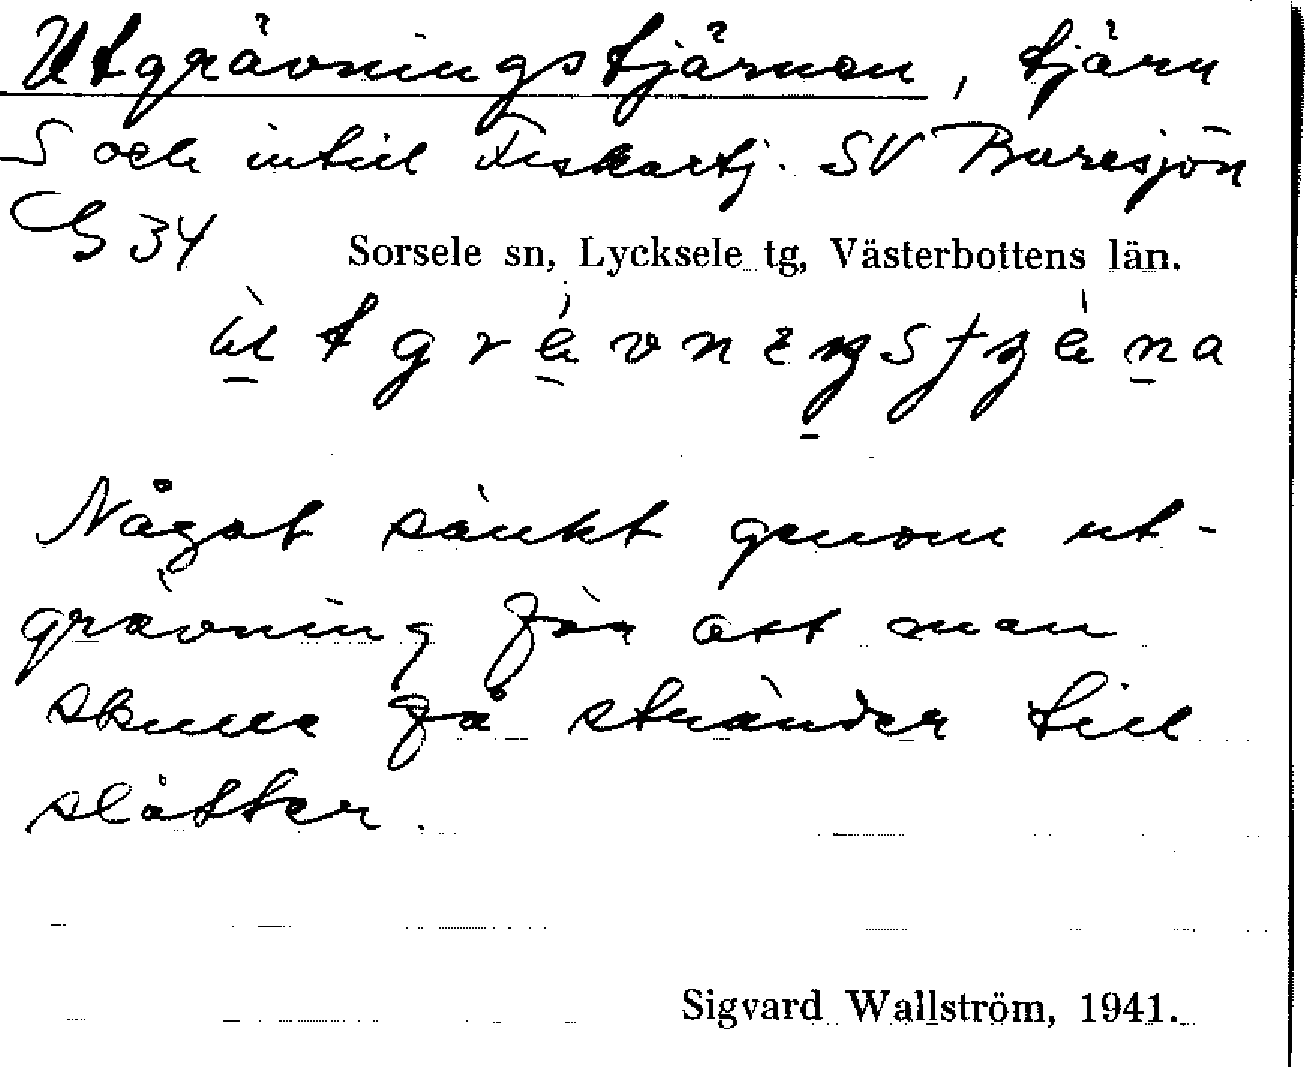 Utgrävningstjärnen, tjärn
S och intill Fiskartj. SV Buresjön
G 34
Sorsele sn, Lycksele tg, Västerbottens län.
Något sänkt genom ut-
grävning för att man
skulle få stränder till
slåtter.
Sigvard Wallström, 1941.